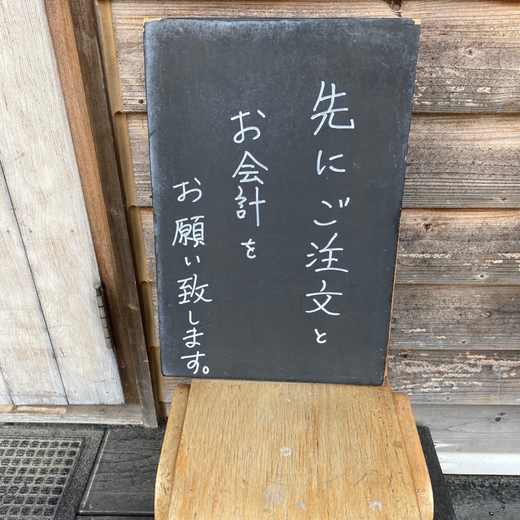 先にご注文と
お会計を
お願い致します。